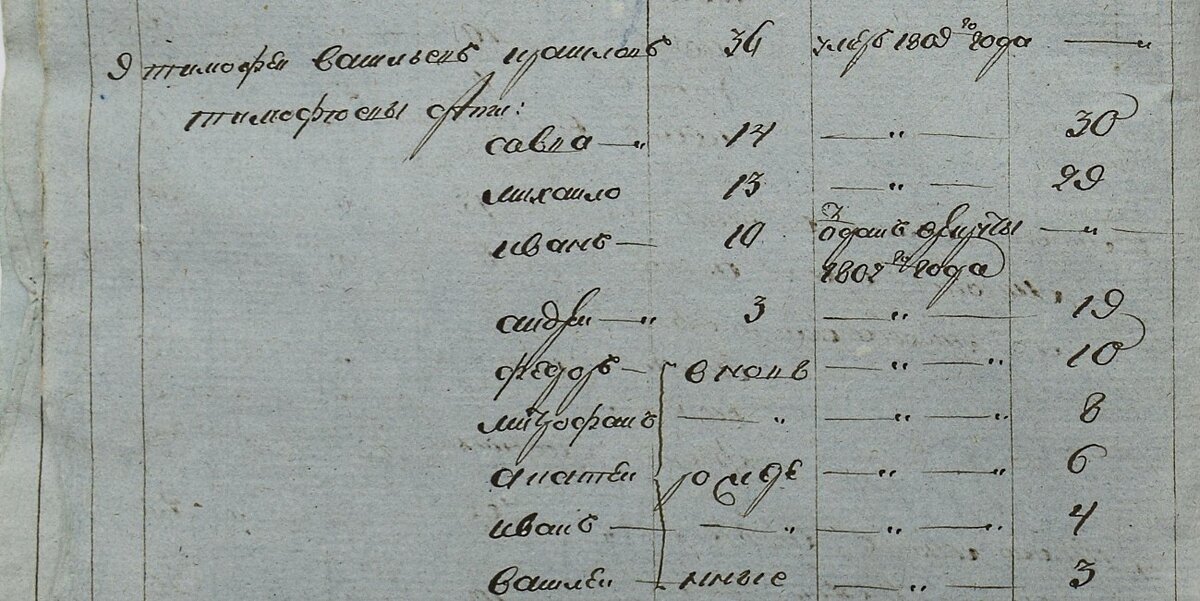 9 тимофей васильевъ 36 умеръ 1809 го года — „
тимофеевы дети:
савва — „ 14 — „ — 30
михайло 13 — „ — 29
иванъ — 10 отданъ врекруты — „ —
1802 го года
андрей — „ 3 — „ — 19
федоръ — вновь — „ — „ 10
митрофанъ — „ — „ — „ 8
рожде — „ — „ 6
иванъ — — „ — „ — „ 4
василей — нные — „ — 3